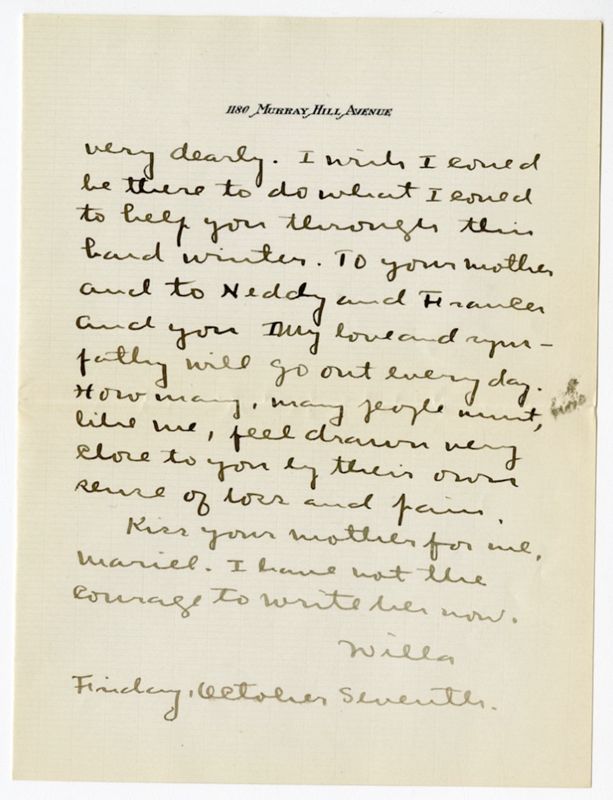 1180 Murray Hill Avenue
very dearly. I wish I could
be there to do what I could
to help you through this
hard winter. To your mother
and to Neddy and Frances
and you my love and sym-
pathy will go out every day.
How many, many people must,
like me, feel drawn very
close to you by their own
sense of loss and pain.
Kiss your mother for me,
Mariel. I have not the
courage to write her now.
Willa
Friday, October Seventh.